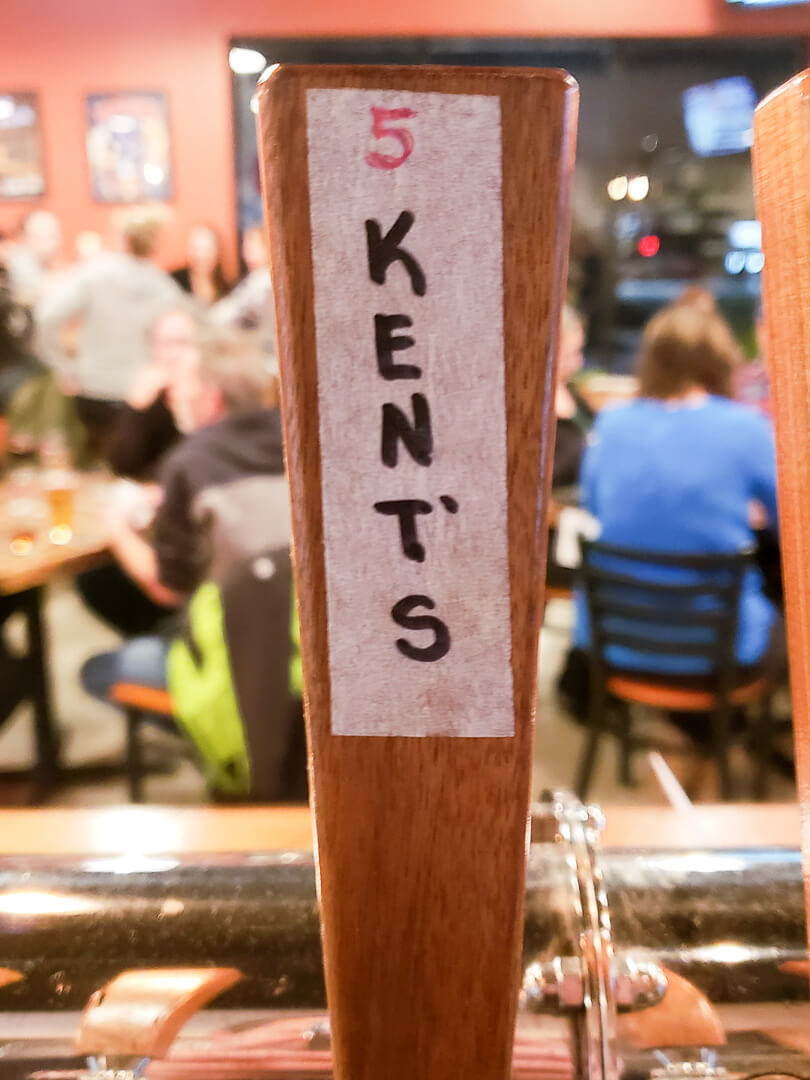 5
KENT'S